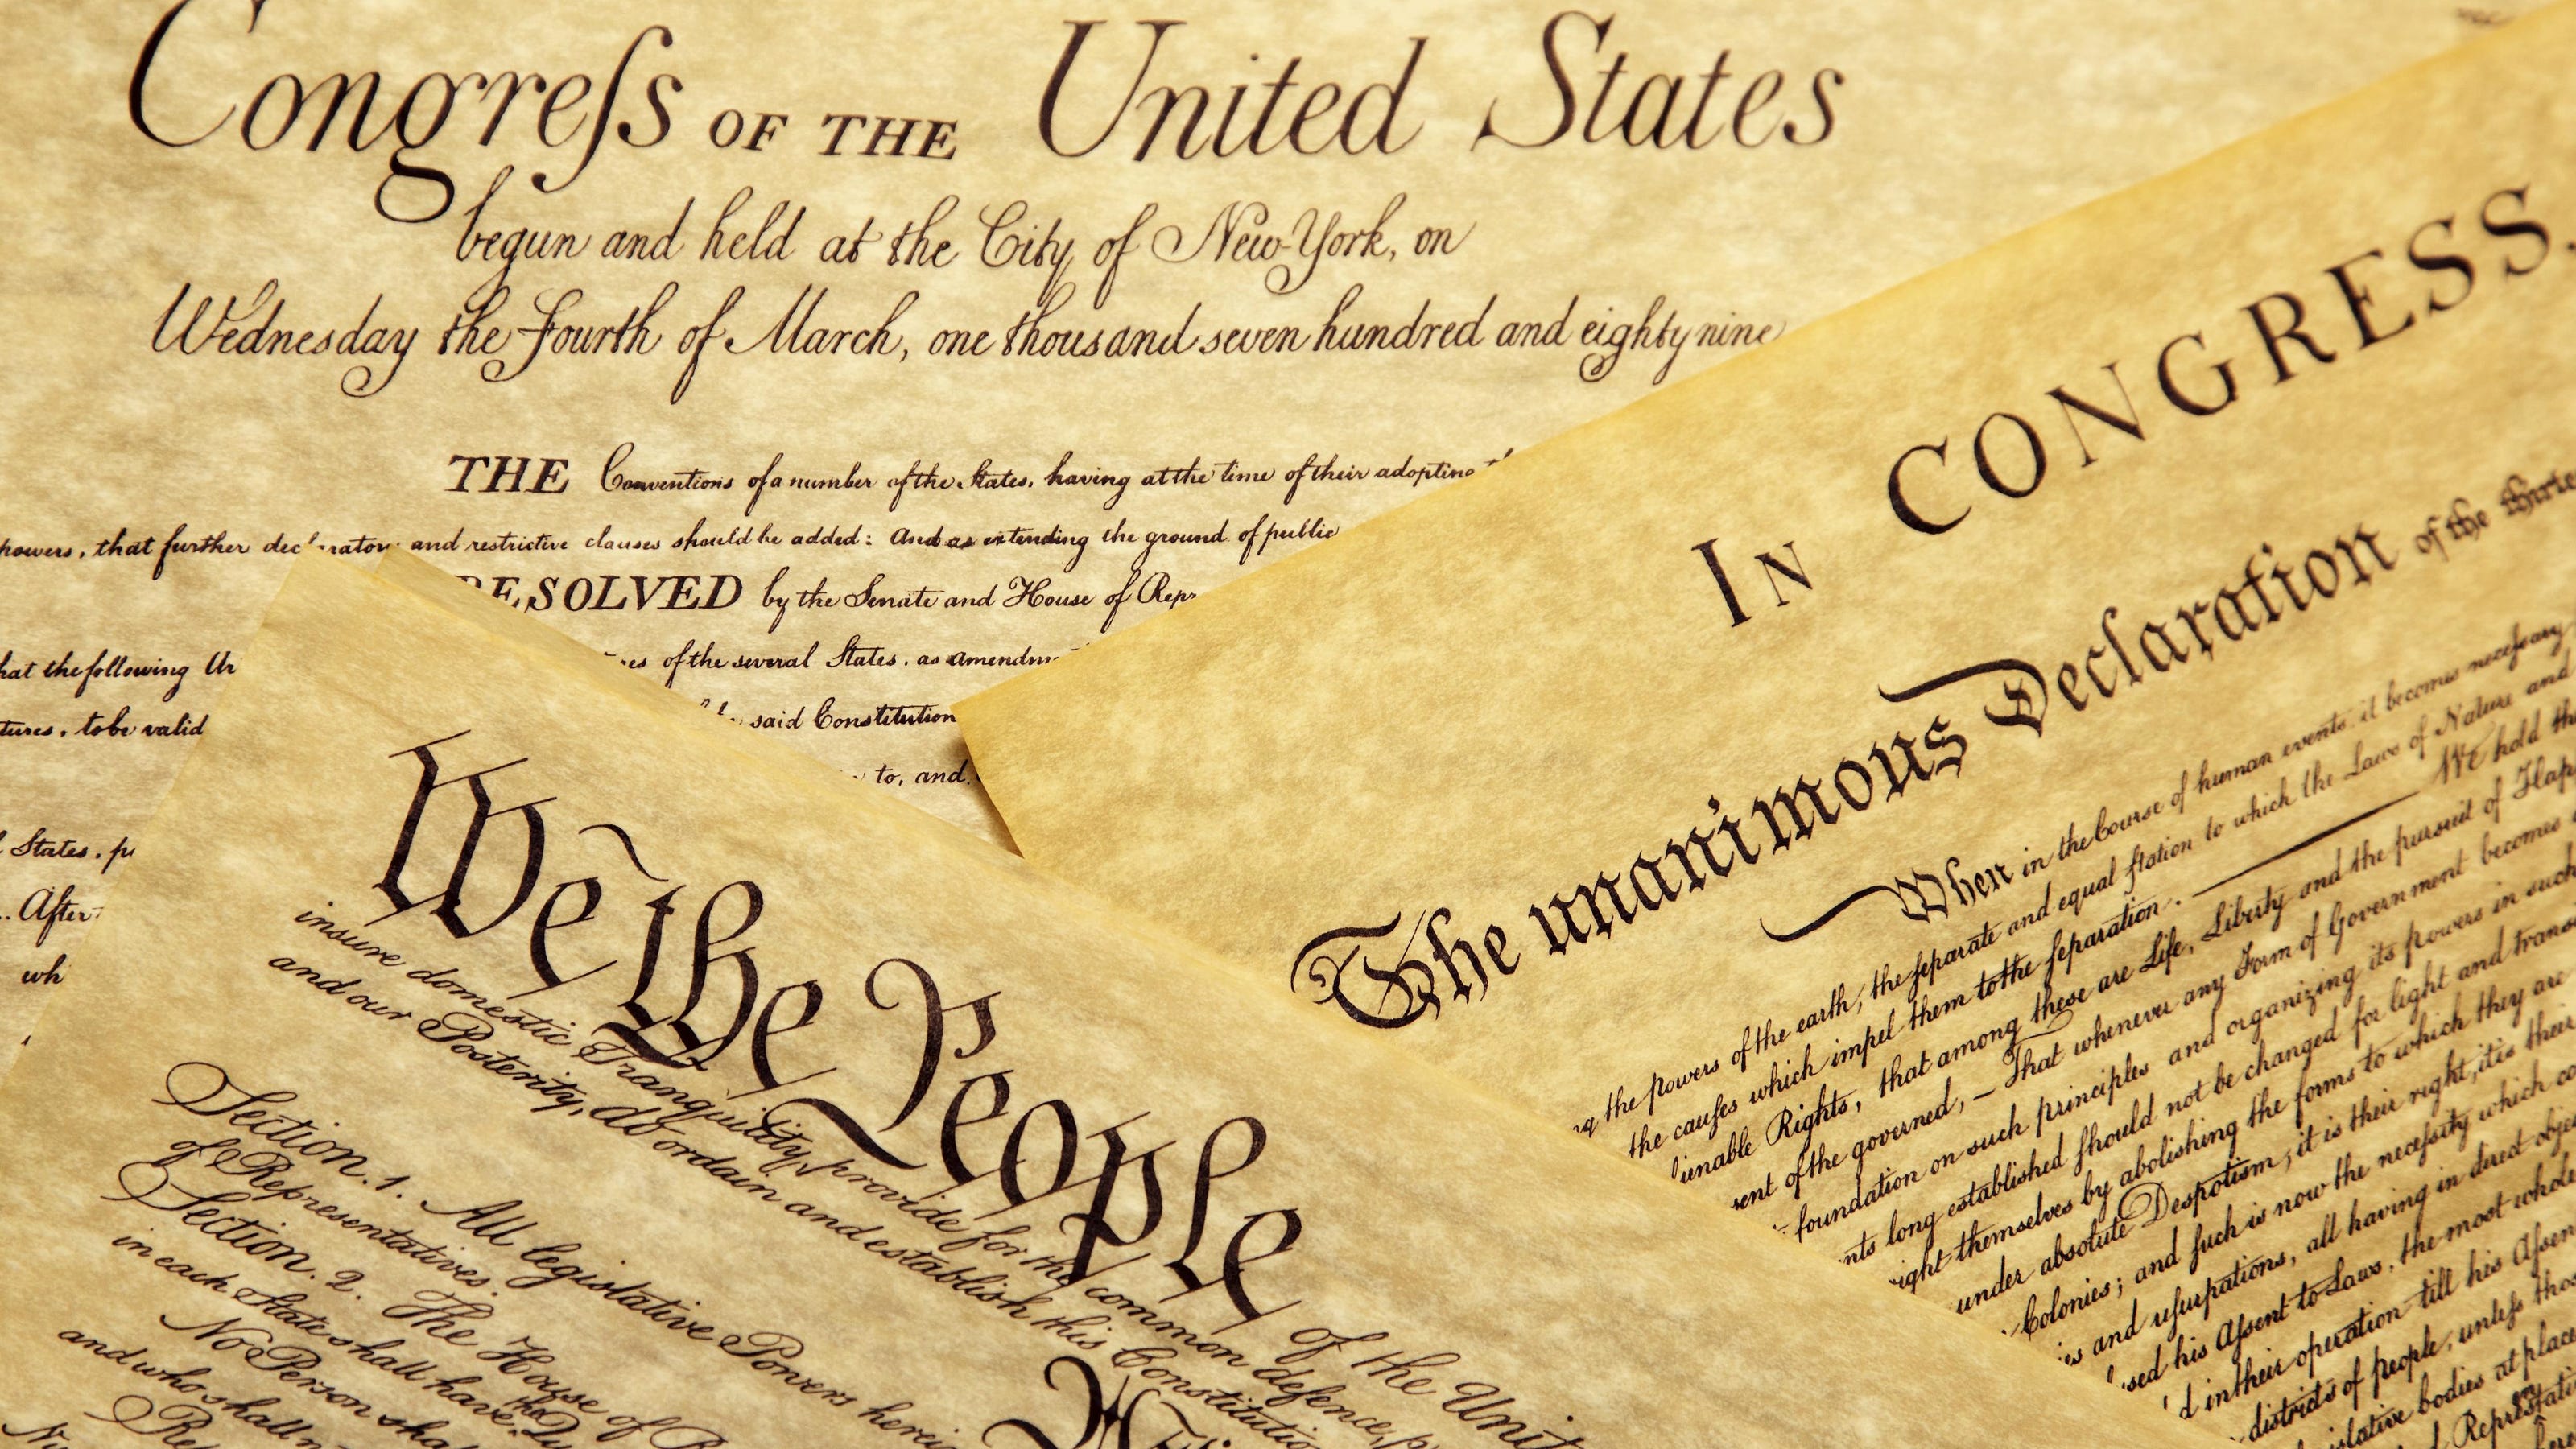 Congreſs OF THE United States
begun and held at the City of New-York, on
Wednesday the Fourth of March, one thousand seven hundred and eighty nine
THE Conventions of a number of the States, having at the time of their adopting
powers, that further declaratory and restrictive clauses should be added: And as extending the ground of public
RESOLVED by the Senate and House of
of the several States, as
hat the following
said Constitution
tures, to be valid
to, and
States,
After
wh
We the People of the
insure domestic Tranquility, provide for the common defence,
and our Posterity, do ordain and establish this Constitution
Section. 1. All legislative Powers herein
of Representatives.
Section. 2. The House of
in each State shall have the
No Person shall
and who shall
IN CONGRESS,
The unanimous Declaration of the
When in the Course of human events, it becomes neceſsary
the powers of the earth, the ſeparate and equal ſtation to which the Laws of Nature and
the cauſes which impel them to the ſeparation. We hold
ienable Rights, that among these are Life, Liberty and the pursuit of
sent of the governed, — That whenever any Form of Government becomes
foundation on such principles and organizing its powers in such
nts long established ſhould not be changed for light and
ight themselves by abolishing the forms to which they are
under absolute Despotism, it is their right, it is their
Colonies; and ſuch is now the neceſsity which
and uſurpations, all having in direct
sed his Aſsent to Laws, the most
d in their operation till his
districts of people, unleſs
islative bodies at